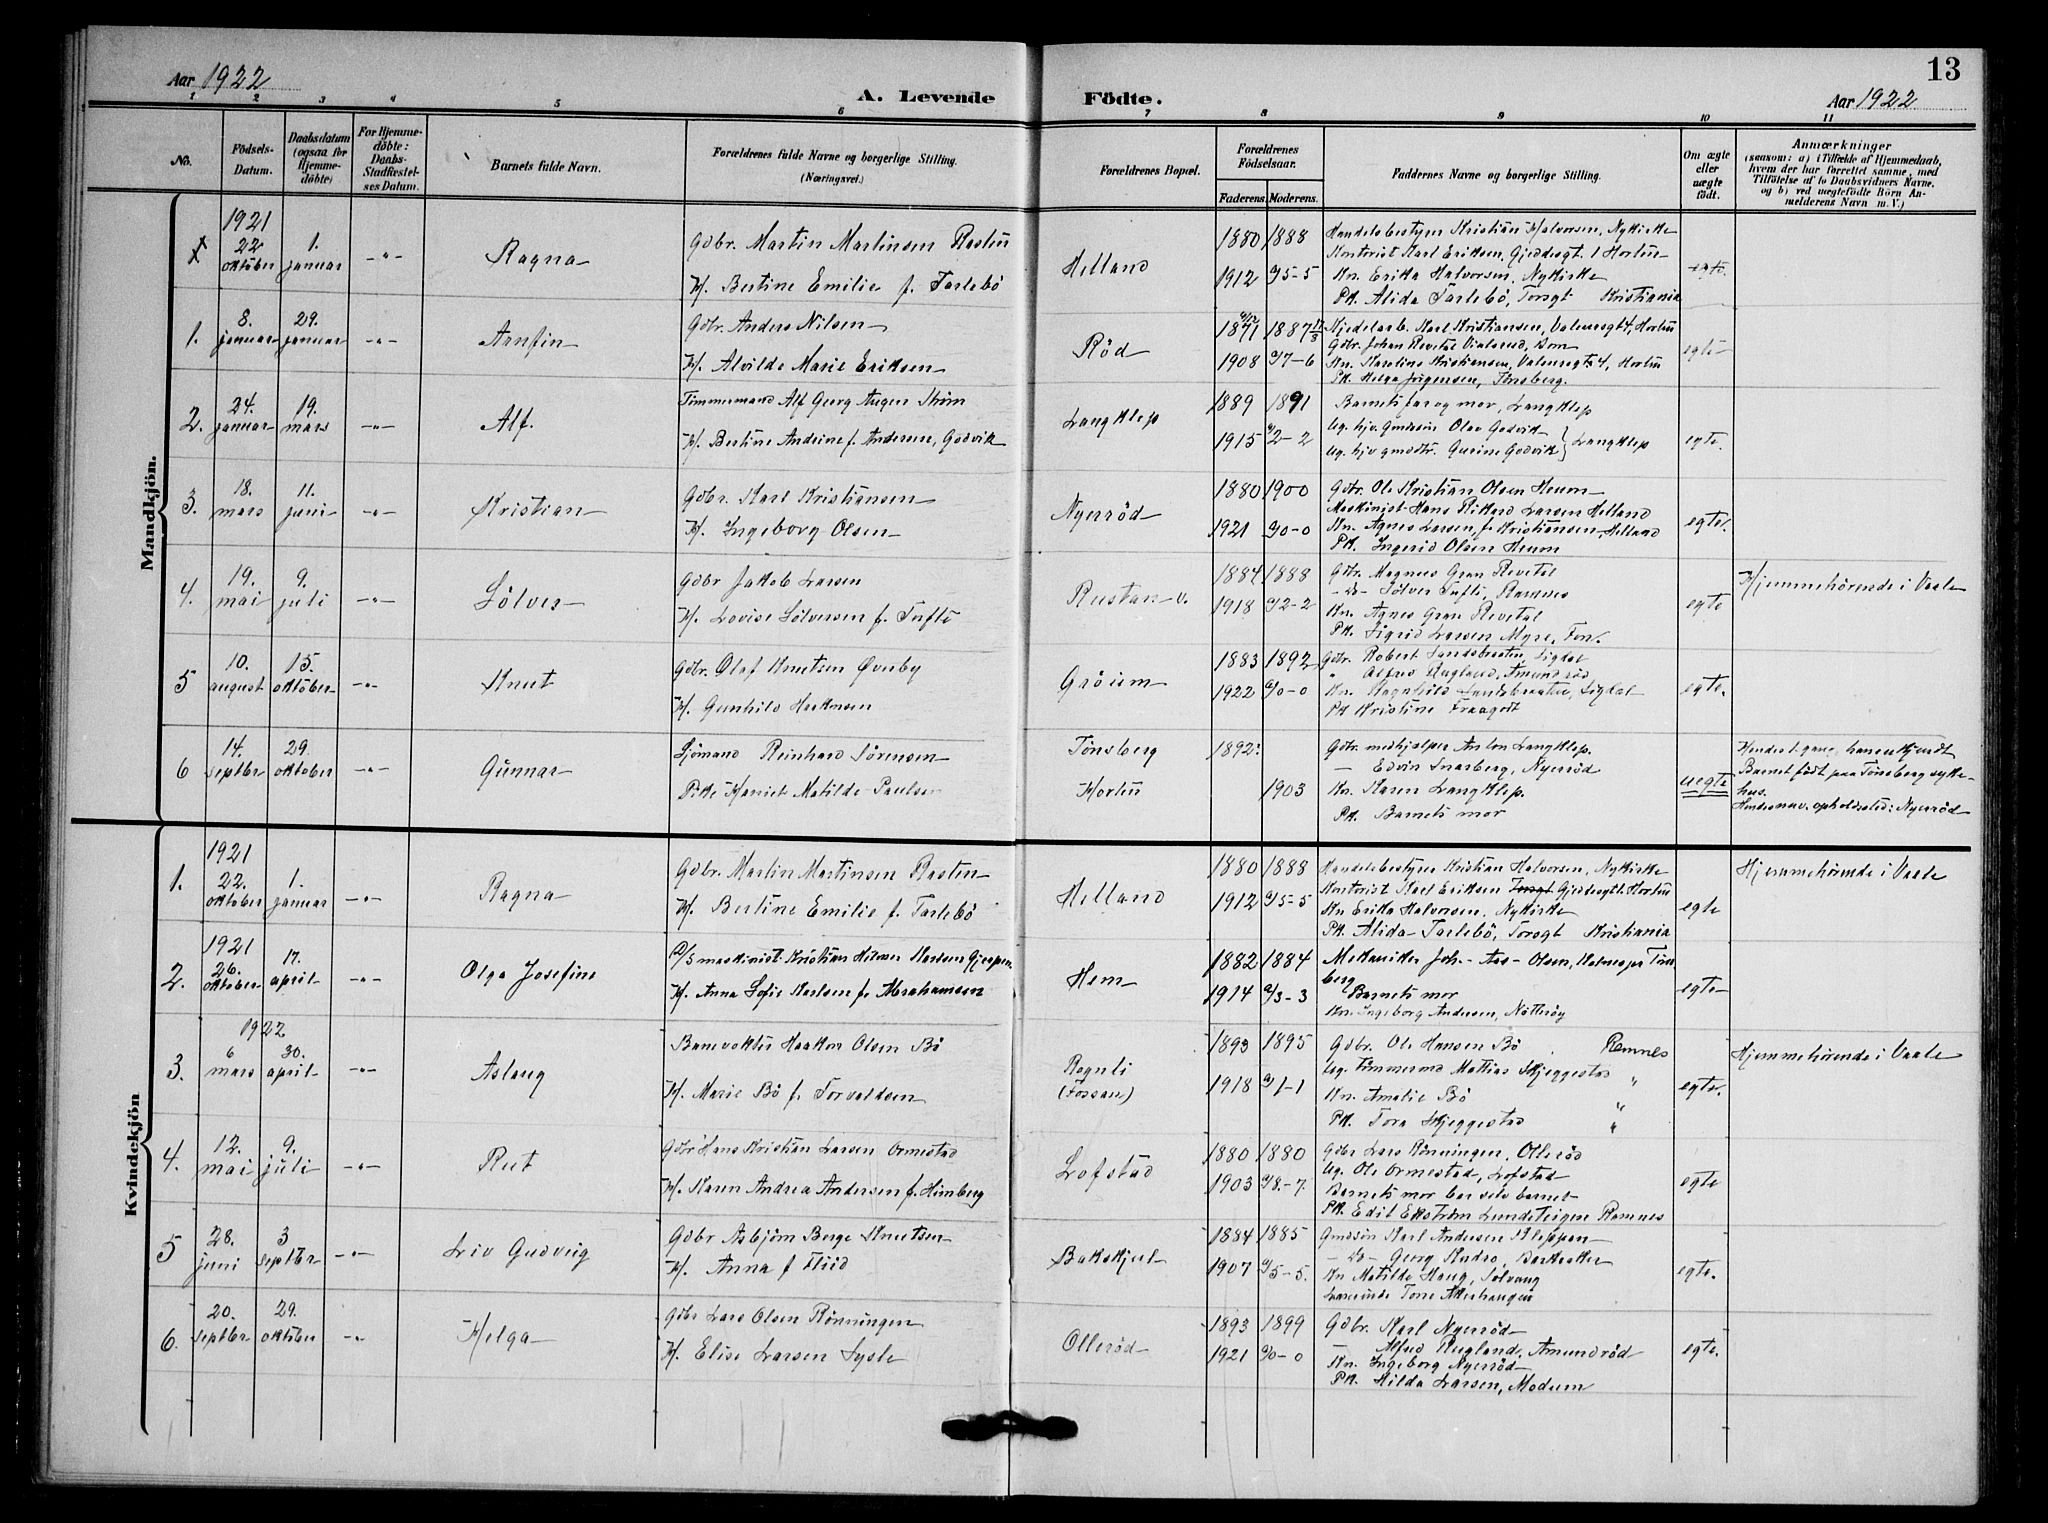 13
Aar 1922
A. Levende Födte.
Aar 1922
1 2 3 4 5 6 7 8 9 10 11
No.
Födsels-Datum.
Daabsdatum (ogsaa for Hjemme-döbte)
For Hjemme-döbte: Daabs-Stadfæstel-ses Datum.
Barnets fulde Navn.
Forældrenes fulde Navne og borgerlige Stilling. (Næringsvei.)
Forældrenes Bopæl.
Forældrenes Födselsaar.
Faderens. Moderens.
Faddernes Navne og borgerlige Stilling.
Om ægte eller uægte födt.
Anmærkninger
(saasom: a) i Tilfælde af Hjemmedaab,
hvem der har forrettet samme, med
Tilföielse af to Daabsvidners Navne,
og b) ved uægtefödte Börn An-
melderens Navn m. V.)
Mandkjön.
1921
22 oktober 1. januar -"- Ragna
Gdbr. Martin Martinsen Rasten
H. Bertine Emilie f. Tarlebö
Helland
1880 1888
1912 5-5
Handelsbestyrer Kristian Halvorsen, Nykirke
Kontorist Karl Eriksen, Gjeddegt. 1 Horten
Kn. Erika Halvorsen, Nykirke
Pk. Alida Tarlebö, Torsgt Kristiania
egte.
1. 8. januar 29. januar -"- Arnfin
Gdbr. Anders Nilsen
H. Alvilde Marie Eriksen
Röd
1871 1887
1908 7-6
Kjedelarb. Karl Kristiansen, Valensegt 4, Horten
Gdbr. Johan Revetal
Kn. Karoline Kristiansen, Valensegt. 4, Horten
Pk. Helga Jörgensen, Tönsberg.
egte
2. 24. januar 19. mars -"- Alf.
Tömmermand Alf Georg August Ström
H. Bertine Andrine f. Andersen, Godvik
Langklep
1889 1891
1915 2-2
Barnets far og mor, Langklep
Ug. hjv. gmdssön Olav Godvik
Ug. hjv gmdtr. Gurine Godvik } Langklep
egte.
3. 18. mars 11. juni -"- Kristian
Gdbr. Karl Kristiansen
H. Ingeborg Olsen
Nyerröd
1880 1900
1921 0-0
Gdbr. Ole Kristian Olsen Heum
Maskinist Hans Rikard Larsen Helland
Kn. Agnes Larsen f. Kristiansen, Helland
Pk. Ingerid Olsen Heum
egte.
4. 19. mai 9. juli -"- Sölver
Gdbr Jakob Larsen
H. Lovise Sölversen f. Tufte
Rustan v.
1884 1888
1918 2-2
Gdbr. Magnus Gran Revetal
-"- Sölver Tufte, Ramnes
Kn. Agnes Gran Revetal
Pk. Sigrid Larsen Myre, Ton.
egte
Hjemmehörende i Vaale
5 10. august 15. oktober -"- Knut
Gdbr. Olaf Knutsen Överby
H. Gunhild Haakonsen
Gröium
1883 1892
1922 0-0
Gdbr. Robert Landsbraaten Sigdal
" Alfred Rugland, Amundröd
Kn. Ragnhild Landsbraaten, Sigdal
Pk Kristine Fraagodt
egte.
6 14. septbr 29. oktober -"- Gunnar
Sjömand Reinhard Sörensen
Pike Harriet Matilde Paulsen
Tönsberg
Horten
1892
1903
Gdbr. medhjelper Anton Langklep.
Edvin Snarberg, Nyerröd
Kn. Karen Langklep.
Pk. Barnets mor
uegte
Hendes 1. gang, hans ukjendt
Barnet födt paa Tönsberg syke-
hus.
Hendes nuv. opholdssted: Nyerröd
Kvindekjön
1921
1. 22. oktober 1. januar -"- Ragna
Gdbr. Martin Martinsen Rasten
H. Bertine Emilie f. Tarlebö
Helland
1880 1888
1912 5-5
Handelsbestyrer Kristian Halvorsen, Nykirke
Kontorist Karl Eriksen Torsgt Gjeddegt 1. Horten
Kn Erika Halvorsen, Nykirke
Pk. Alida Tarlebö, Torsgt Kristiania
egte
Hjemmehörende i Vaale
1921
2. 26. oktober 17. april -"- Olga Josefine
D/S maskinist Kristian Hilmer Karlsen Gjerpen
H. Anna Sofie Karlsen f. Abrahamsen
Hem
1882 1884
1914 3-3
Mekaniker Joh. Aas Olsen, Holmen pr Töns
berg
Barnets mor
Kn. Ingeborg Andersen, Nötteröy
egte
1922
3. 6 mars 30. april -"- Aslaug
Banevokter Haakon Olsen Bö
H. Marie Bö f. Torvaldsen
Rognli
(Fossan)
1893 1895
1918 1-1
Gdbr. Ole Hansen Bö Ramnes
Ug. Tömmermd Mattias Skjeggestad "
Kn. Amalie Bö "
Pk. Tora Skjeggestad "
egte.
Hjemmehörende i Vaale
4. 12. mai 9. juli -"- Rut
Gdbr Hans Kristian Larsen Ormestad
H. Karen Andrea Andersen f. Himberg
Lofstad
1880 1880
1903 8-7.
Gdbr Lars Rönningen, Olleröd
Ug. Ole Ormestad, Lofstad
Barnets mor bar selv barnet
Pk. Edit Ekström Lundsteigen Ramnes
egte
5 28. juni 3 septbr -"- Liv Gudveig
Gdbr Asbjörn Berge Knutsen
H. Anna f Fliid
Bakskjul
1884 1885
1907 5-5.
Gmdssön Karl Andersen Kleppan
-"- Georg Andre, Barkaaker
Kn Matilde Haug, Solvang
Lærerinde Tone Akerhaugen
egte.
6. 20. septbr 29. oktober -"- Helga
Gdbr Lars Olsen Rönningen
H. Elise Larsen Sysle
Olleröd
1893 1899
1921 0-0
Gdbr. Karl Nyerröd
Alfred Rugland, Amundröd
Kn. Ingeborg Nyerröd
Pk. Hilda Larsen, Modum
egte.